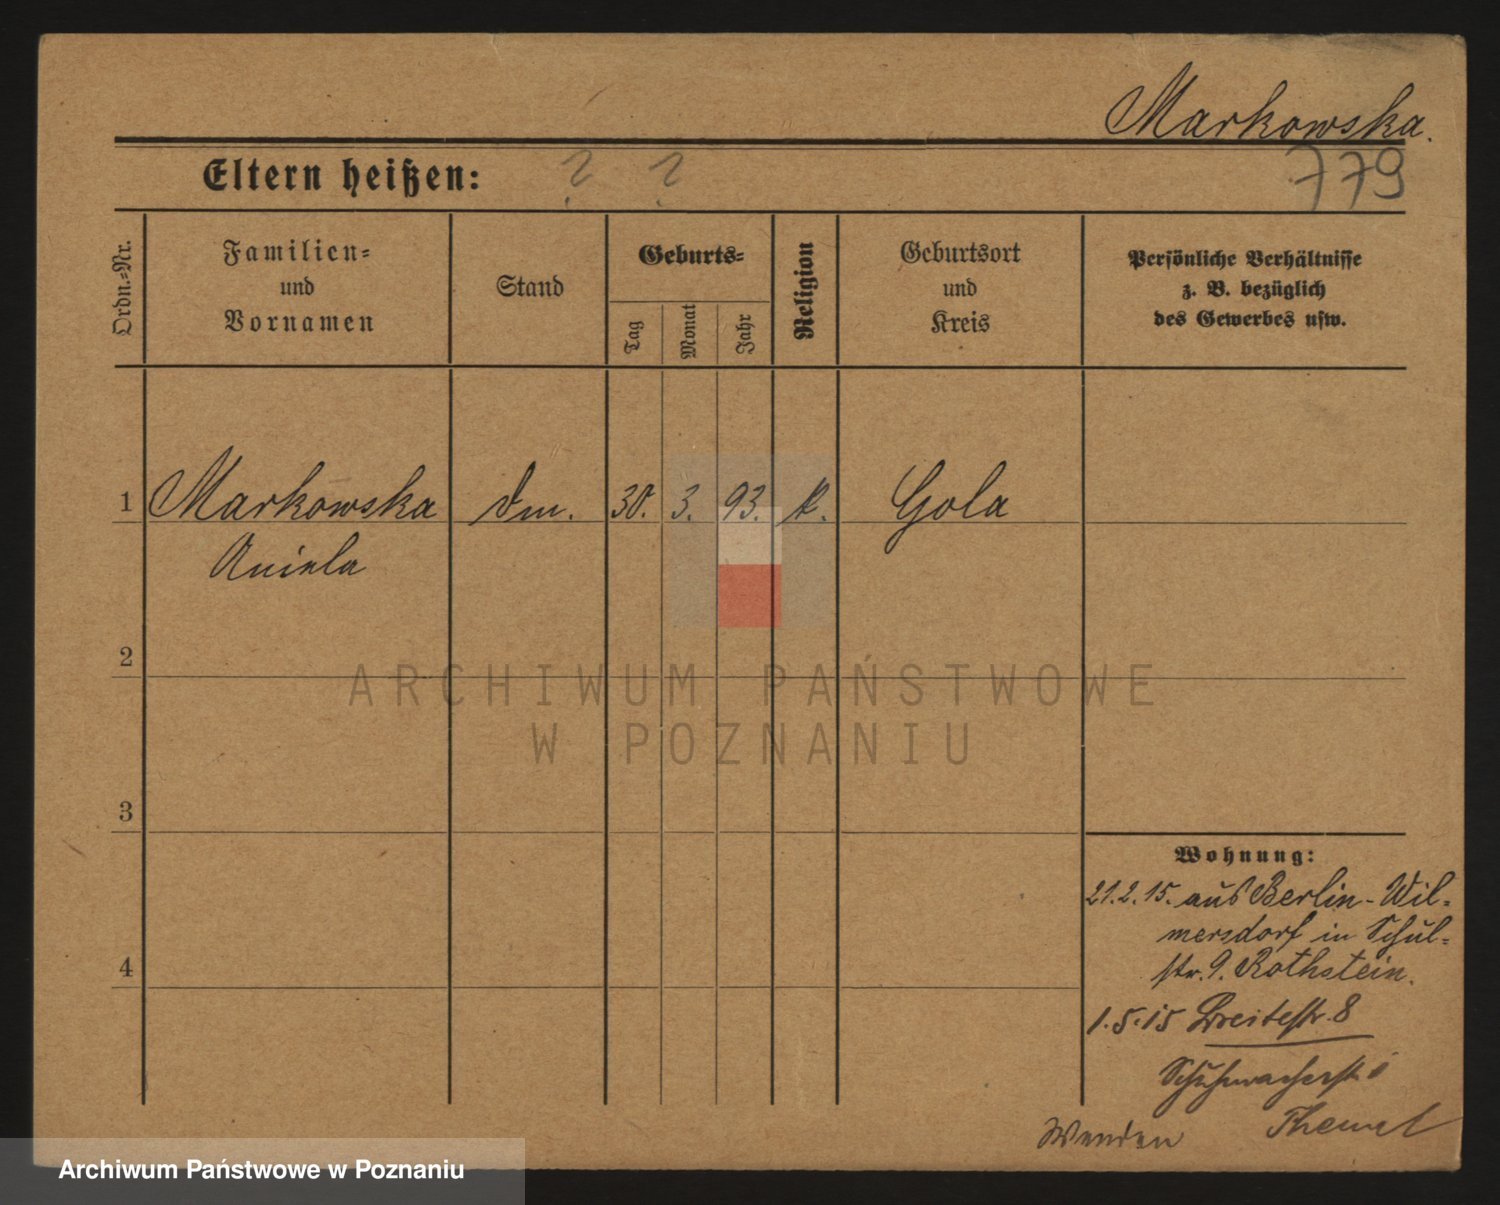 Markowska.
Eltern heißen: ? ?
779
Ordn.-Nr.
Familien-
und
Vornamen
Stand
Geburts-
Tag
Monat
Jahr
Religion
Geburtsort
und
Kreis
Persönliche Verhältnisse
z. B. bezüglich
des Gewerbes usw.
1 Markowska 30. 3. 93. k. Gola
Aniela
2
ARCHIWUM PAŃSTWOWE
W POZNANIU
3
Wohnung:
21.2.15. aus Berlin-Wil-
mersdorf in Schul-
str. 9. Rothstein.
4
1.5.15 Breitestr. 8
Schuhmacherstr.
Wenden
Archiwum Państwowe w Poznaniu